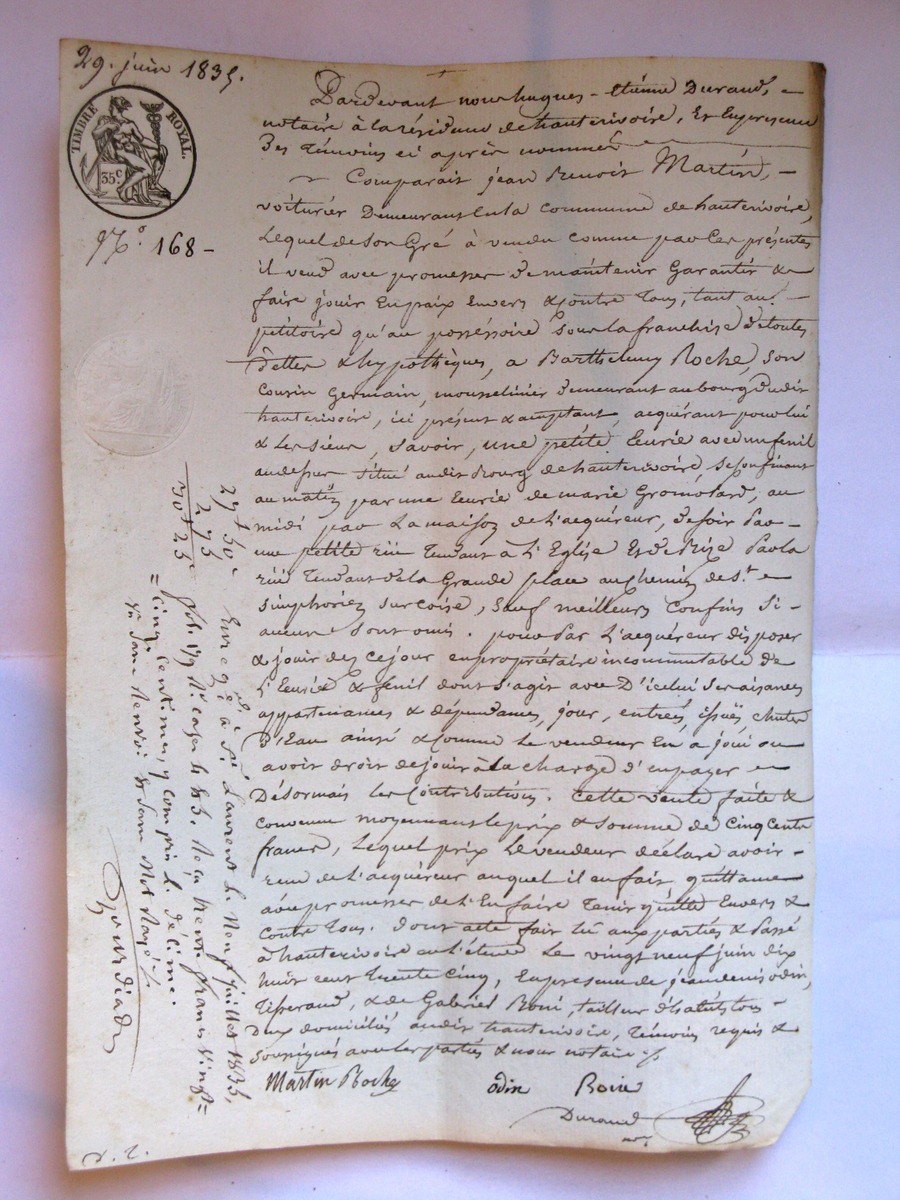 29. juin 1835.
TIMBRE ROYAL.
35c
No. 168 -
Pardevant nous hugues - étiéne Durand, -
notaire à la résidence de hauterivoire, Et En presence
Des témoins ci après nommés
Comparait jean Benoit Martin, -
voiturier Demeurant En la commune de hauterivoire,
Lequel de Son Gré à vendu comme par Ces présentes
il vend avec promesse De maintenir Garantir &
faire jouir En paix Envers & Contre Tous, tant au -
petitoire qu'au posséssoire Sous la franchise de toutes
Dettes & hypothèques, a Barthelemy Roche, Son
Cousin Germain, mousselinier demeurant au bourg dudit
hauterivoire, ici présent & acceptant, acquérant pour lui
& Les Siens, Savoir, une petite Ecurie avec un fenil
au dessus Situé audit Bourg de hauterivoire, Se Confinant
au matin par une Ecurie de marie Gromolard, au
midi par La maison de L'acquéreur, De Soir Par
une petite rüe Tendant à L'Eglise Et de Bize Par la
rüe Tendant de la Grande place au Chemin de St. -
Simphorien Sur Coise, Sauf meilleurs Confins Si
aucuns Sont omis. pour Par L'acquéreur disposer
& jouir dez Ce jour en propriétaire incommutable de
L'Ecurie & fenil dont S'agit avec D'icelui Ses aisances
appartenances & dépendances, jour, entrées, issües, chutes
D'Eau ainsi & Comme Le vendeur En a joui ou
avoir droit de jouir à La charge d'en payer -
Désormais Les Contributions. Cette vente faite &
Convenue moyennant le prix & Somme de Cinq Cents
francs, Lequel prix Le vendeur déclare avoir -
reçu de L'acquéreur auquel il en fait quittance
avec promesse de L'En faire Tenir quitte Envers &
Contre Tous. Dont acte fait lu aux parties & Passé
à hauterivoire en L'étude Le vingt neuf juin dix
huit cent trente Cinq, En presence de jean denis odin,
Tisserand, & de Gabriel Boiri, tailleur d'habits, tous
Deux domiciliés audit hauterivoire, Témoins requis &
Soussignés avec Les parties & nous notaire
Martin Roche odin Boiri
Durand
27 f 50
2,75
30 f 25
Enregé. à St. Laurent le Neuf juillet 1835,
fol. 179 Vo. case 4 & 5. Reçu trente francs Vingt=
=Cinq Centimes, y compris le Décime.
Vu Sans Renvoi & Sans Mot Rayé.
Gourdiad